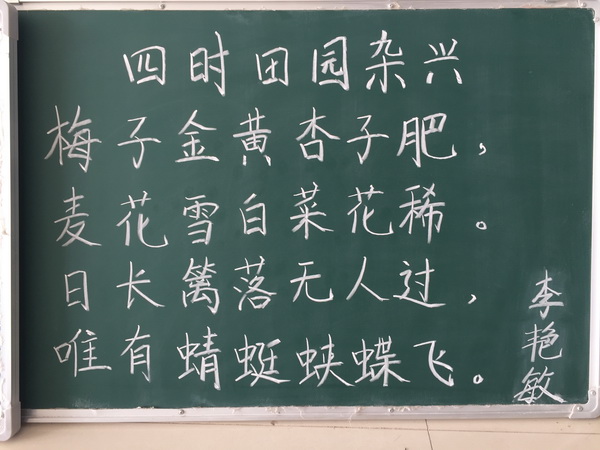 四时田园杂兴
梅子金黄杏子肥，
麦花雪白菜花稀。
日长篱落无人过，
唯有蜻蜓蛱蝶飞。
李艳敏